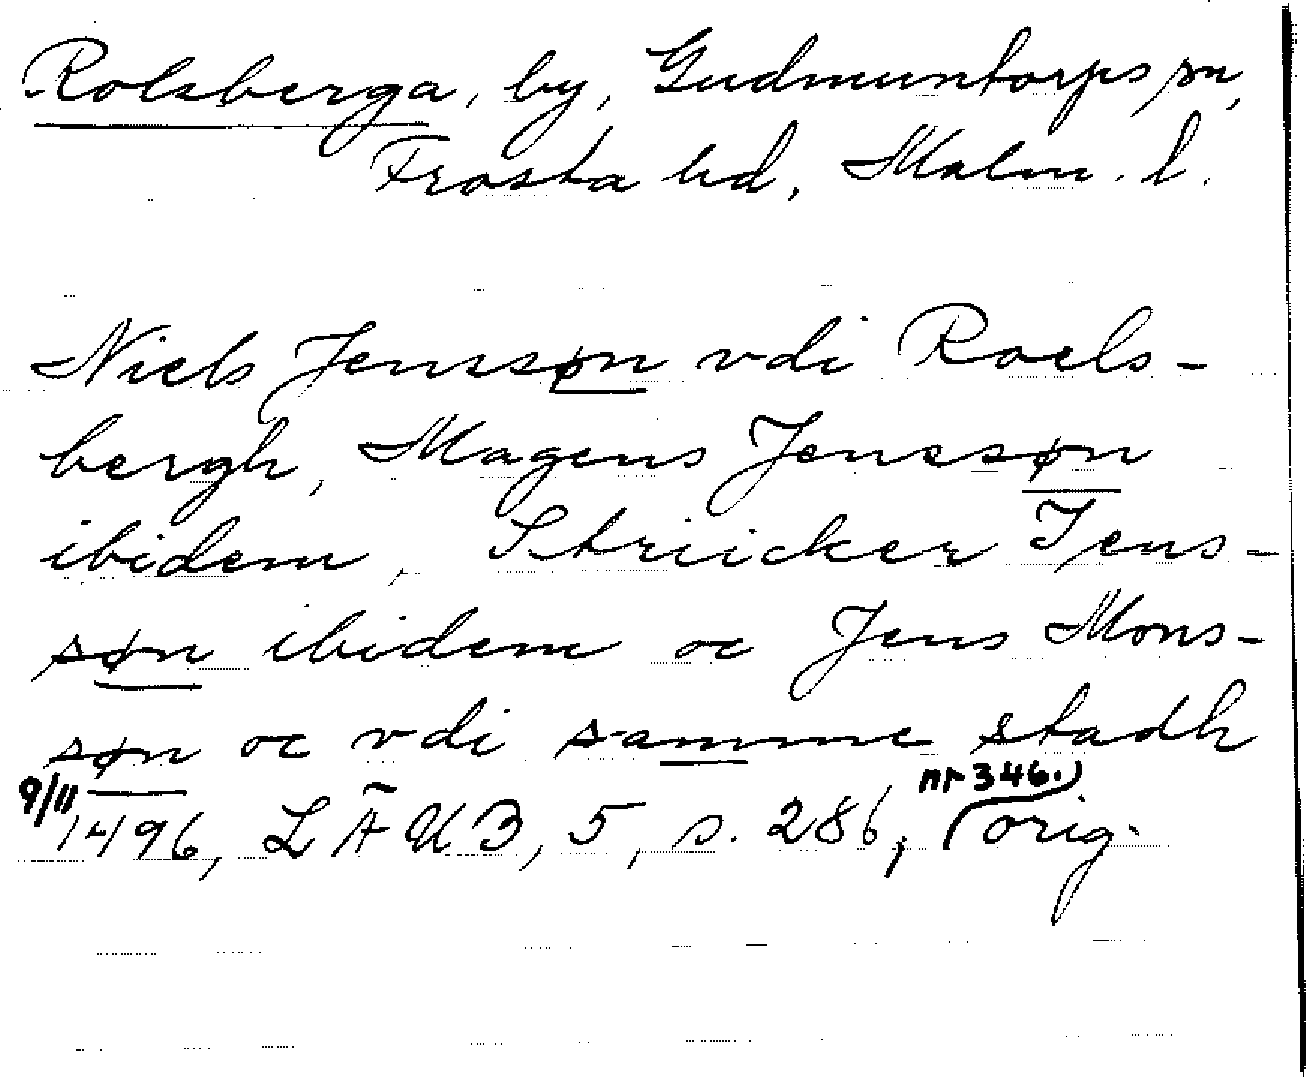 Rolsberga, by, Gudmuntorps sn,
Frosta hd, Malm. l.
Niels Jenssøn vdi Roels-
bergh, Magens Jenssøn
ibidem, Striicker Jens-
søn ibidem oc Jens Mons-
søn oc vdi samme stadh
9/11 1496, LÄUB, 5, s. 286, nr 346. (orig.)